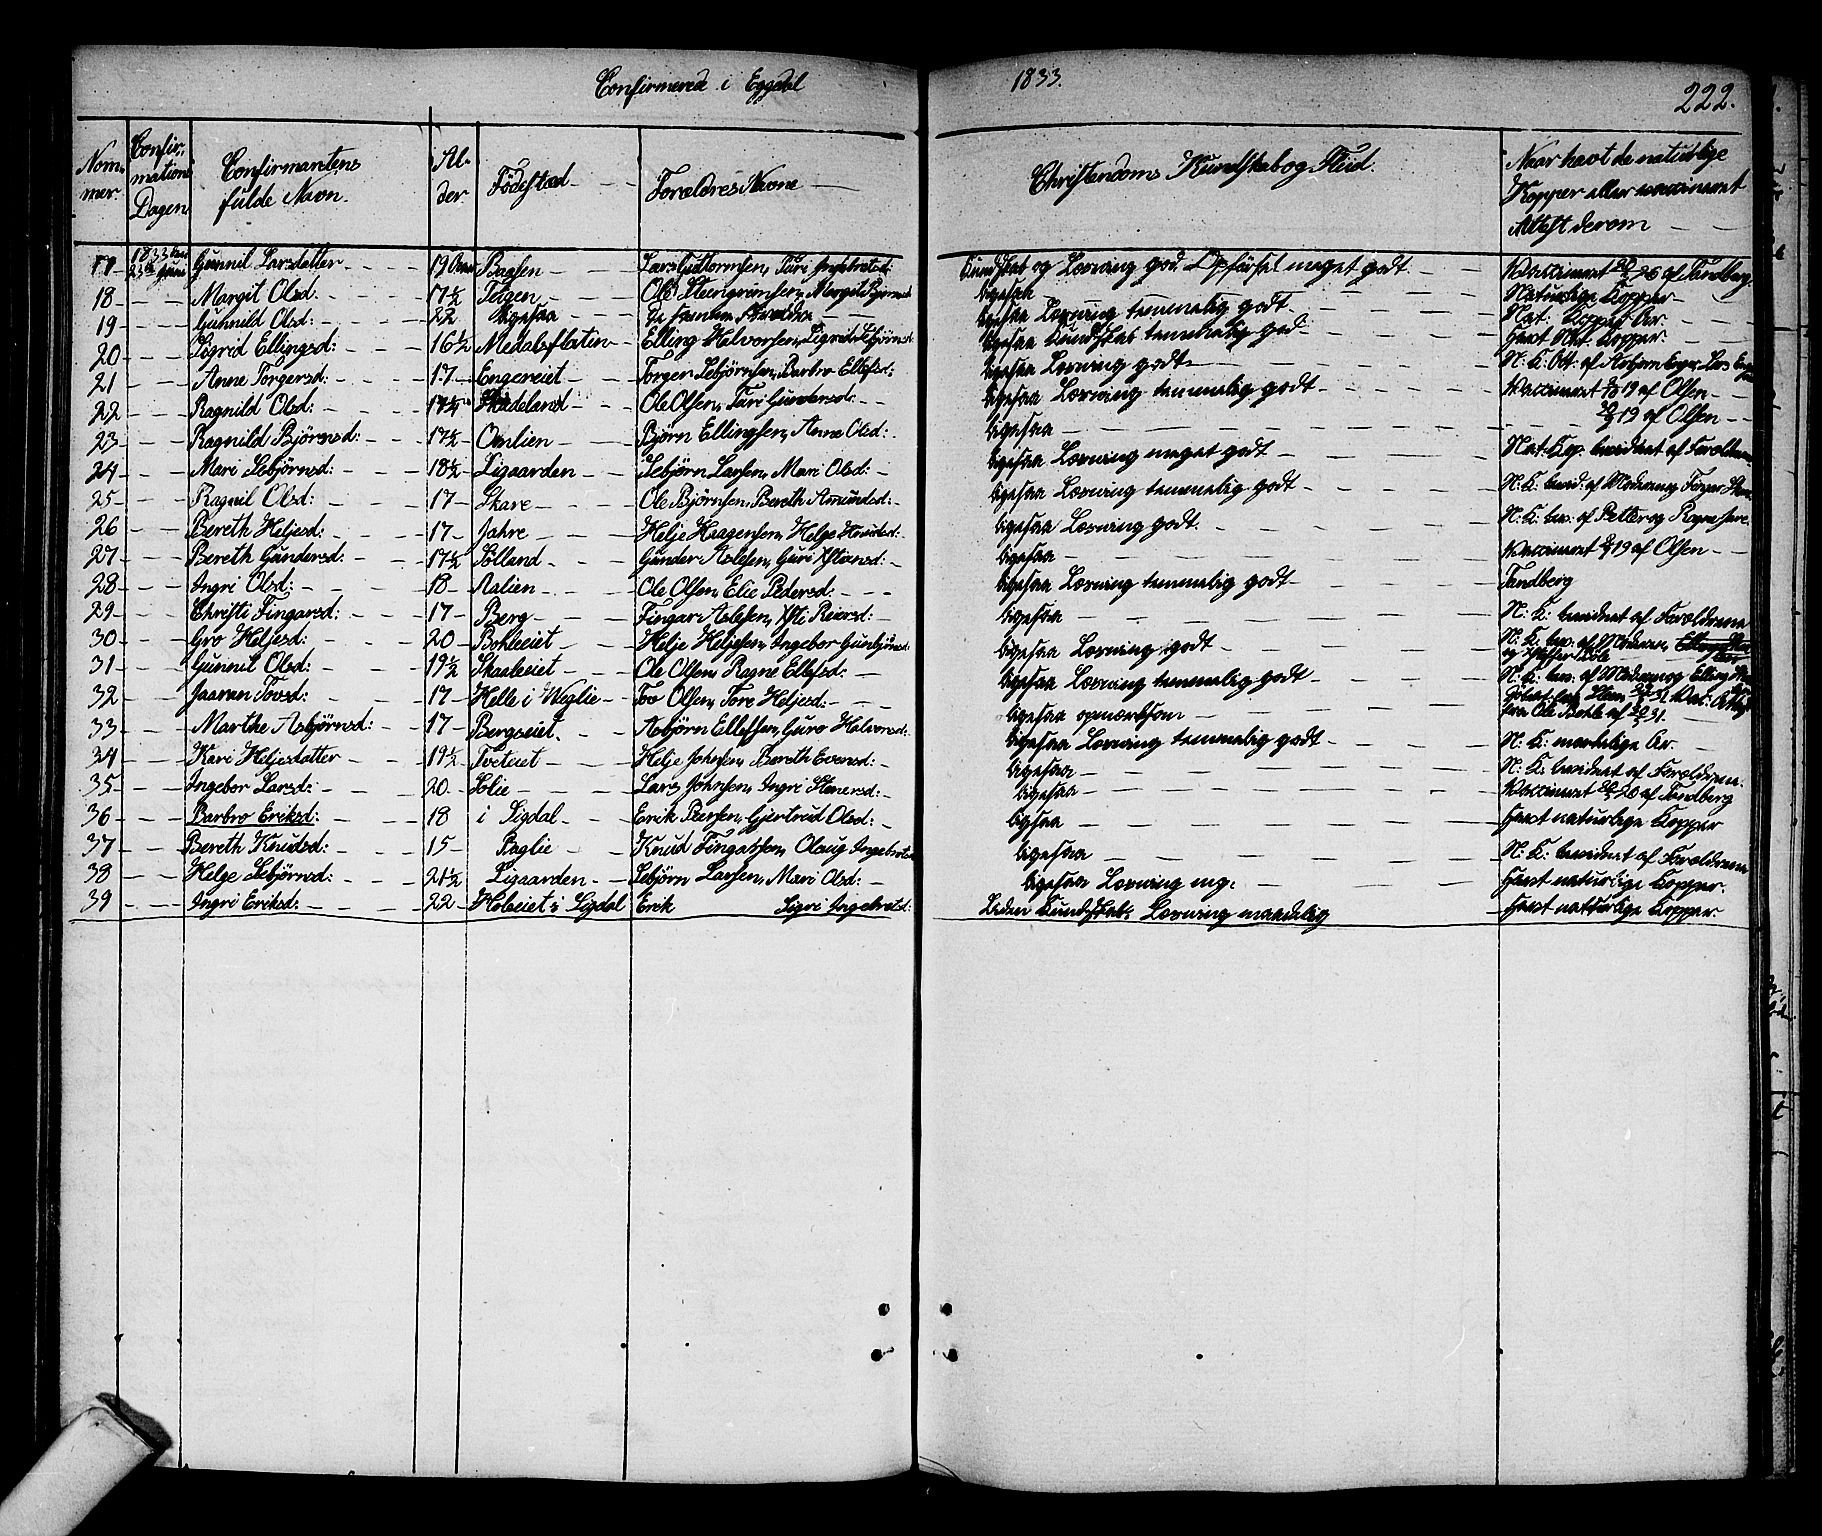 Confirmerede i Eggedal 1833. 222.
Nom-mer. Confir-mations Dagen Confirmantens fulde Navn. Al-der. Fødested Forældres Navne Christendoms Kundskab og Flid. Naar havt de naturlige Kopper eller vaccineret Attest derom
17 1833 Gunnil Larsdatter 19 Baglien Lars Guttormsen, Turi Kundskab og Lærning god. Opførsel meget godt Vaccineret 26 af Tandberg
18 Margit Olsd. 17½ Teigen Ole Steengrimsen, Margit Bjørnsd ligesaa Naturlige Kopper
19 Gunnild Olsd: 22 ligesaa de samme Forældre ligesaa Lærning temmelig godt Nat: Kopper Ar.
20 Sigrid Ellingsd: 16½ Medalsflatin Elling Halvorsen, Sigrid Sebjørnsd: ligesaa Kundskab temmelig god havt Nat. Kopper.
21 Anne Torgersd: 17 Engereiet Torger Sebjørnsen, Barbro Ellefsd: ligesaa Lærning godt N: K: Att. af
22 Ragnild Olsd: 17¼ Skadeland Ole Olsen, Turi Gundersd: ligesaa Lærning temmelig godt Vaccineret 19 af Olsen
23 Ragnild Bjørnsd: 17½ Omlien Bjørn Ellingsen, Anne Olsd: ligesaa 19 af Olsen
24 Mari Sebjørnsd: 18½ Ligaarden Sebjørn Larsen, Mari Olsd: ligesaa Lærning meget godt Nat: Kop. bevidnet af Forældrene
25 Ragnil Olsd: 17 Skare Ole Bjørnsen, Bereth Amundsd: ligesaa Lærning temmelig godt N: K: bevid. af Moderen og
26 Bereth Heljesd: 17 Jahre Helje Haagensen, Helge Knudsd: ligesaa Lærning godt. N: K: bev. af Petter og Ragne Jare
27 Bereth Gundersd: 17½ Sølland Gunder Aslesen, Guri ligesaa Vaccineret 19 af Olsen
28 Ingri Olsd: 18 Aalien Ole Olsen, Elie Pedersd: ligesaa Lærning temmelig godt Tandberg
29 Christi Fingarsd: 17 Berg Fingar Aslesen, Xsti Reiersd: ligesaa N: K: bevidnet af Forældrene
30 Gro Heljesd: 20 Bohleeiet Helje Heljesen, Ingebor Gunbjørnsd: ligesaa Lærning godt N: K: bev. af Moderen,
31 Gunnil Olsd: 19½ Skaaleeiet Ole Olsen, Ragne Ellefsd: ligesaa Lærning temmelig godt N: K: bev. af Moderen og Elling
32 Jaaran Tovsd: 17 Helle i Veglie Tov Olsen, Tore Heljesd: ligesaa opmærksom fra Ole Bohle af 31.
33 Marthe Asbjørnsd: 17 Bergseiet Asbjørn Ellefsen, Guro Halvorsd: ligesaa Lærning temmelig godt N: K: mærkelige Ar.
34 Kari Heljesdatter 19½ Tveteiet Helje Johnsen, Bereth Evensd: ligesaa N: K: bevidnet af Forældrene.
35 Ingebor Larsd: 20 Holie Lars Johnsen, Ingri Stenersd: ligesaa Vaccineret 20 af Tandberg
36 Barbro Eriksd: 18 i Sigdal Erik Peersen, Gjertrud Olsd: ligesaa havt naturlige Kopper
37 Bereth Knudsd: 15 Baglie Knud Fingarsen, Olaug Ingebretsd ligesaa N: K: bevidnet af Forældrene
38 Helge Sebjørnsd: 21½ Ligaarden Sebjørn Larsen, Mari Olsd: ligesaa Lærning mg: havt naturlige Kopper.
39 Ingri Eriksd: 22 i Sigdal Erik Sigri Ingebretsd: Liden Kundskab. Lærning maadelig havt naturlige Kopper.